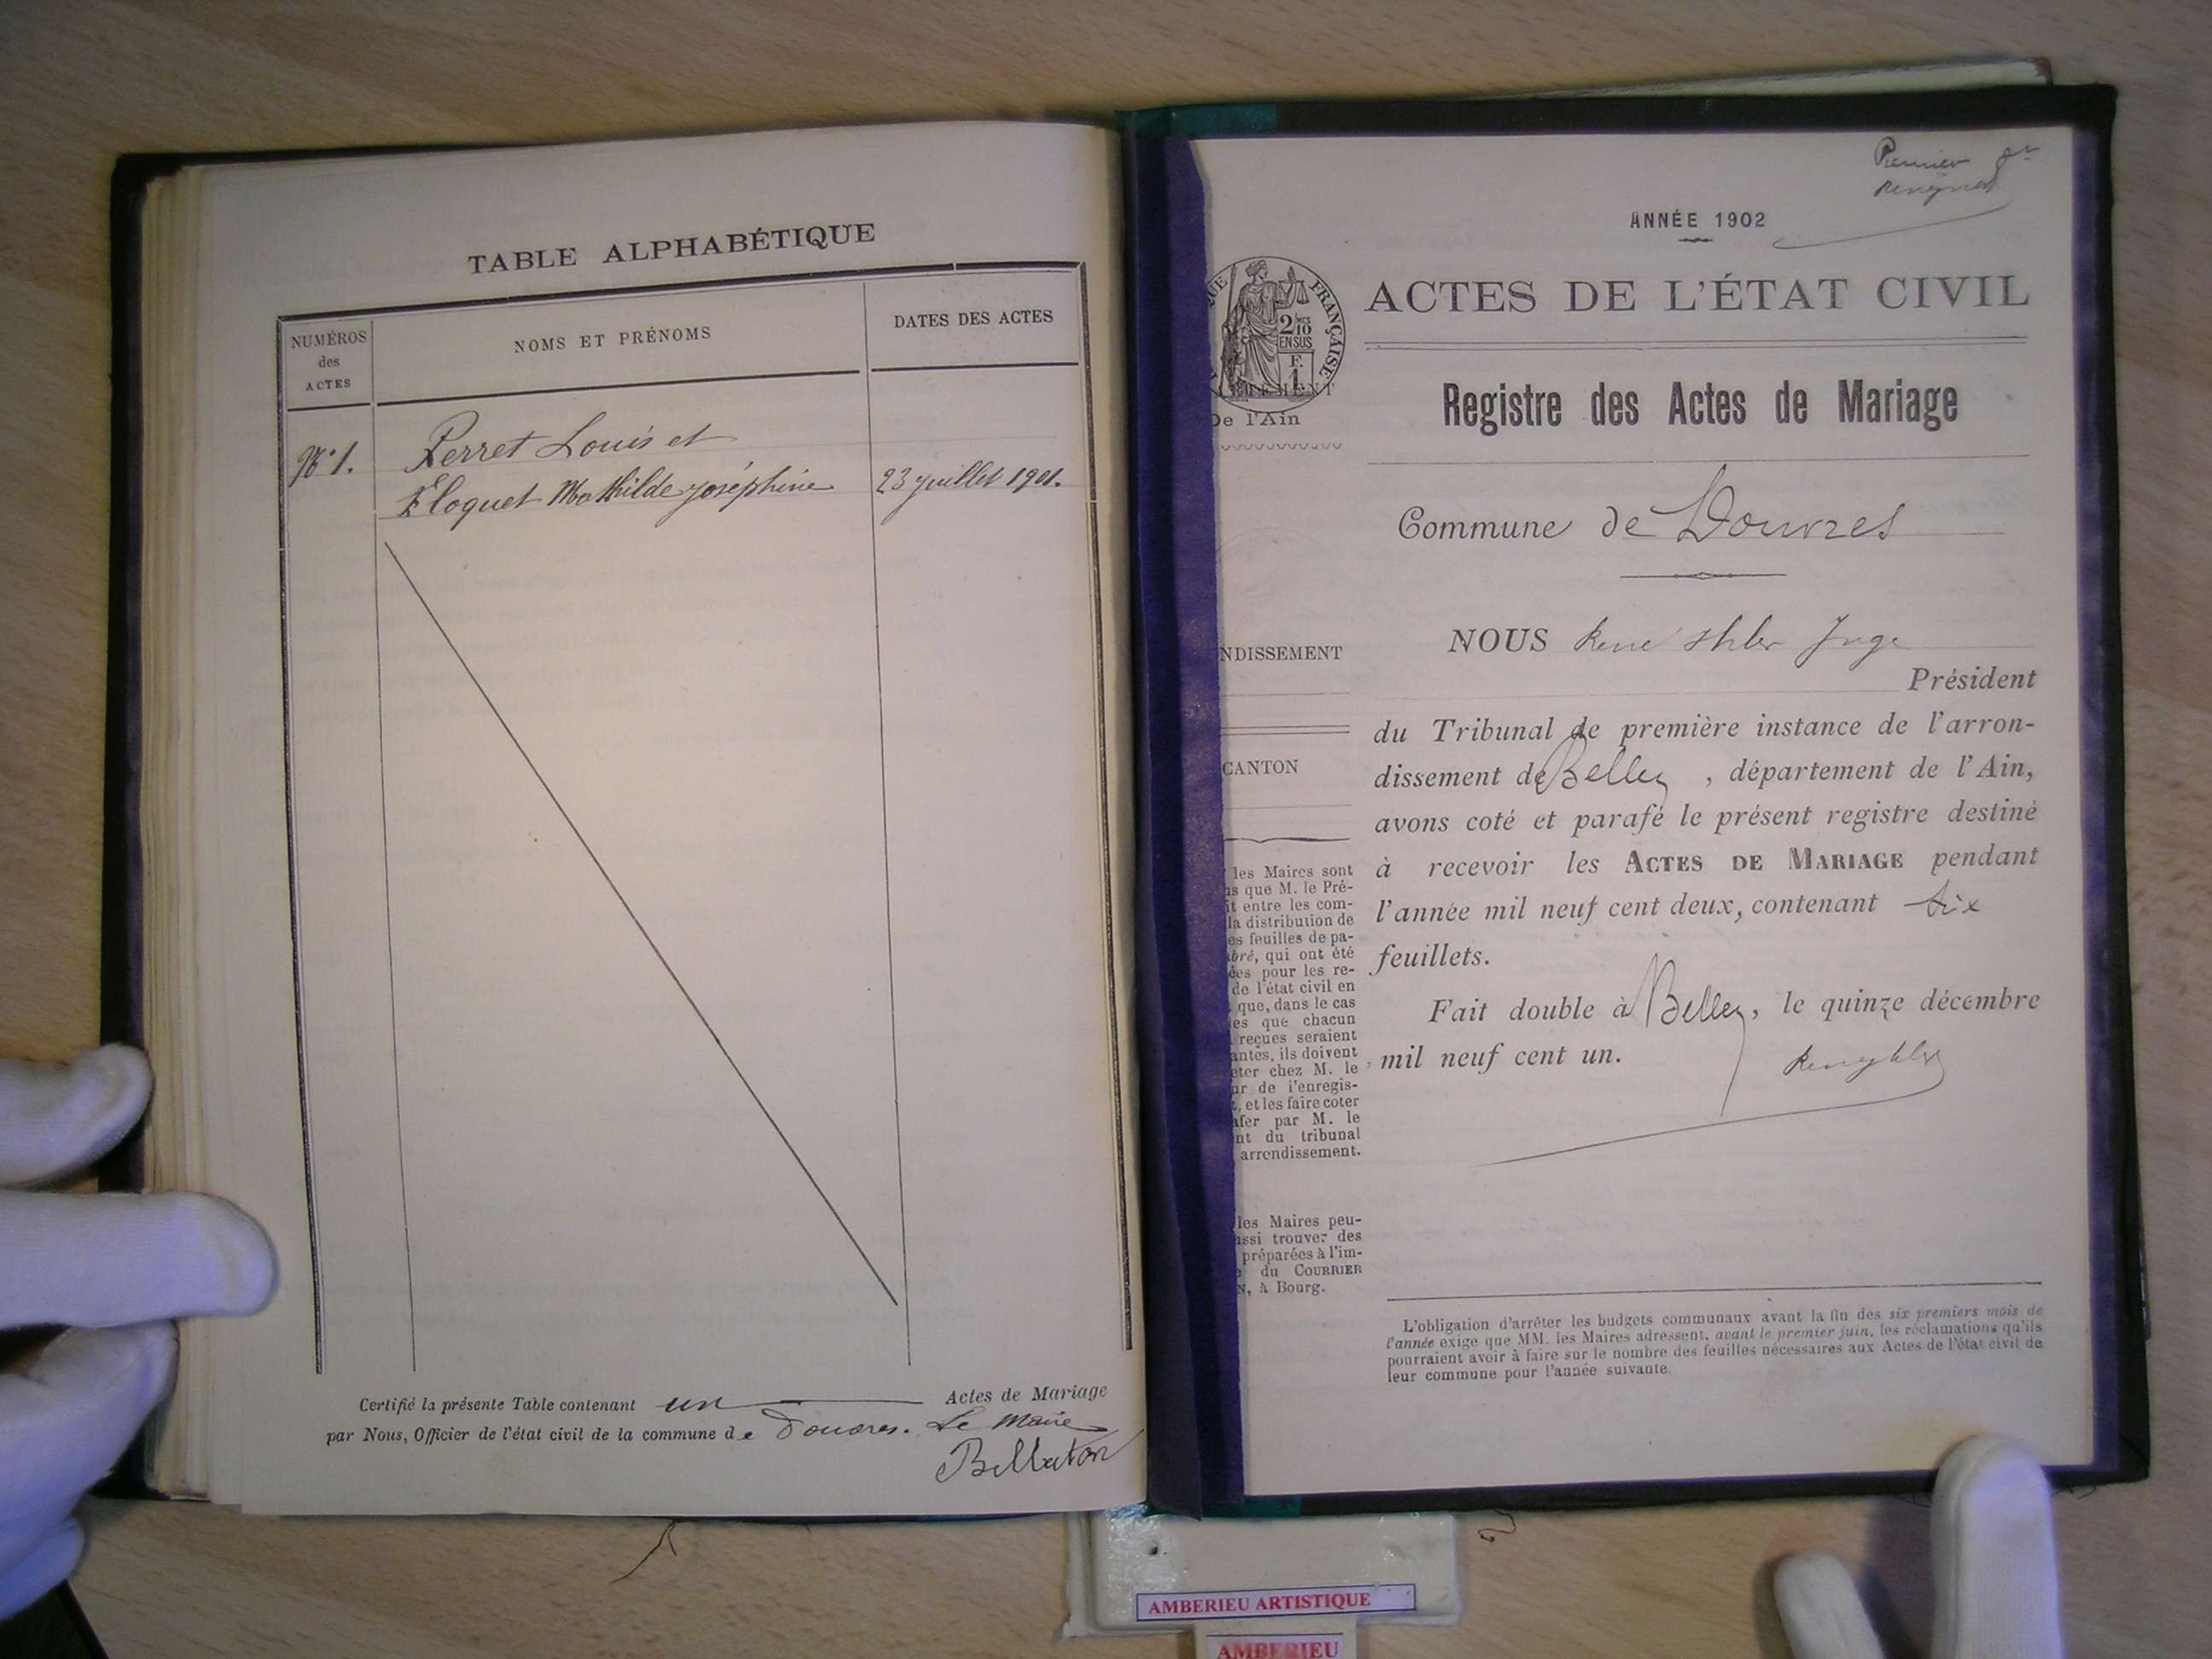 TABLE ALPHABÉTIQUE
NUMÉROS
des
ACTES
NOMS ET PRÉNOMS
DATES DES ACTES
N° 1.
Perret Louis et
Eloquet Mathilde Joséphine
23 juillet 1901.
Certifié la présente Table contenant un Actes de Mariage
par Nous, Officier de l'état civil de la commune de Douvres. Le Maire
Bellaton
Premier
ANNÉE 1902
ACTES DE L'ÉTAT CIVIL
QUE FRANÇAISE
2/10
EN SUS
F.
1
De l'Ain
Registre des Actes de Mariage
Commune de Douvres
NDISSEMENT
CANTON
NOUS René Juge
Président
du Tribunal de première instance de l'arron-
dissement de Belley, département de l'Ain,
avons coté et parafé le présent registre destiné
à recevoir les ACTES DE MARIAGE pendant
l'année mil neuf cent deux, contenant six
feuillets.
Fait double à Belley, le quinze décembre
mil neuf cent un.
les Maires sont
ns que M. le Pré-
it entre les com-
la distribution de
es feuilles de pa-
bré, qui ont été
ées pour les re-
de l'état civil en
que, dans le cas
les que chacun
reçues seraient
antes, ils doivent
eter chez M. le
ur de l'enregis-
t, et les faire coter
afer par M. le
nt du tribunal
arrondissement.
les Maires peu-
ussi trouver des
préparées à l'im-
e du COURRIER
N, à Bourg.
L'obligation d'arrêter les budgets communaux avant la fin des six premiers mois de
l'année exige que MM. les Maires adressent, avant le premier juin, les réclamations qu'ils
pourraient avoir à faire sur le nombre des feuilles nécessaires aux Actes de l'état civil de
leur commune pour l'année suivante.
AMBERIEU ARTISTIQUE
AMBERIEU